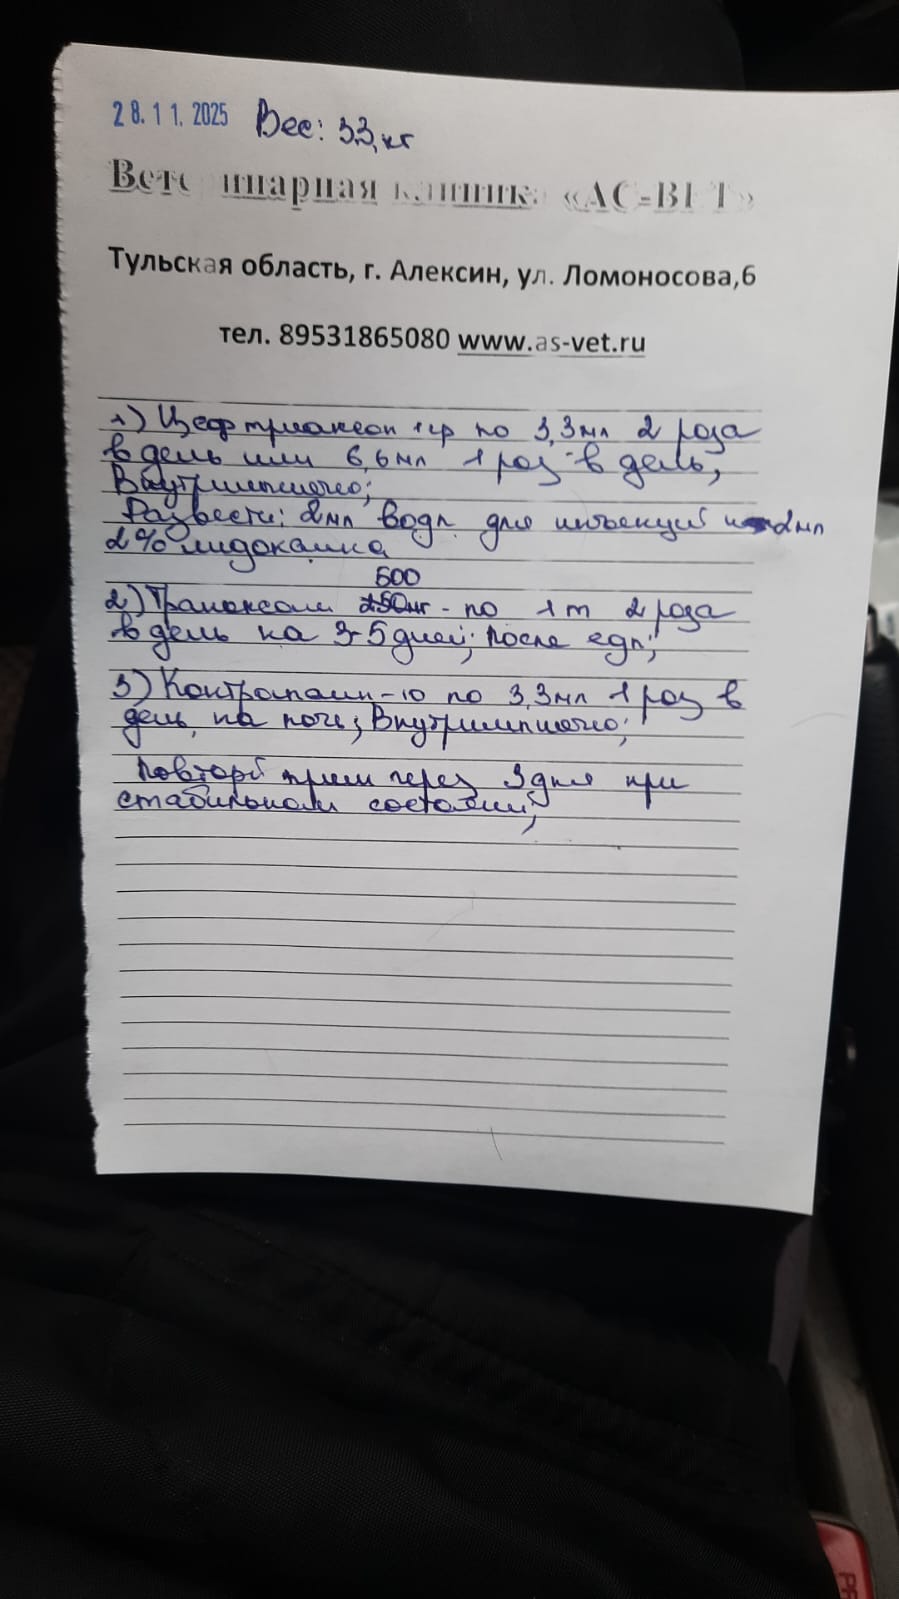 28.11.2025 Вес: 33, кг
Ветеринарная клиника «АС-ВЕТ»
Тульская область, г. Алексин, ул. Ломоносова,6
тел. 89531865080 www.as-vet.ru
1) Цефтриаксон 1гр по 3,3мл 2 раза
в день или 6,6мл 1 раз в день,
Внутримышечно;
Развести: 2мл воды для инъекций и 2мл
2% лидокаина
500
2) Транексам 250мг - по 1т 2 раза
в день на 3-5 дней; после еды;
3) по 3,3мл 1 раз в
день, на ночь; Внутримышечно;
Повтор прием через 3 дня при
стабильном состоянии;